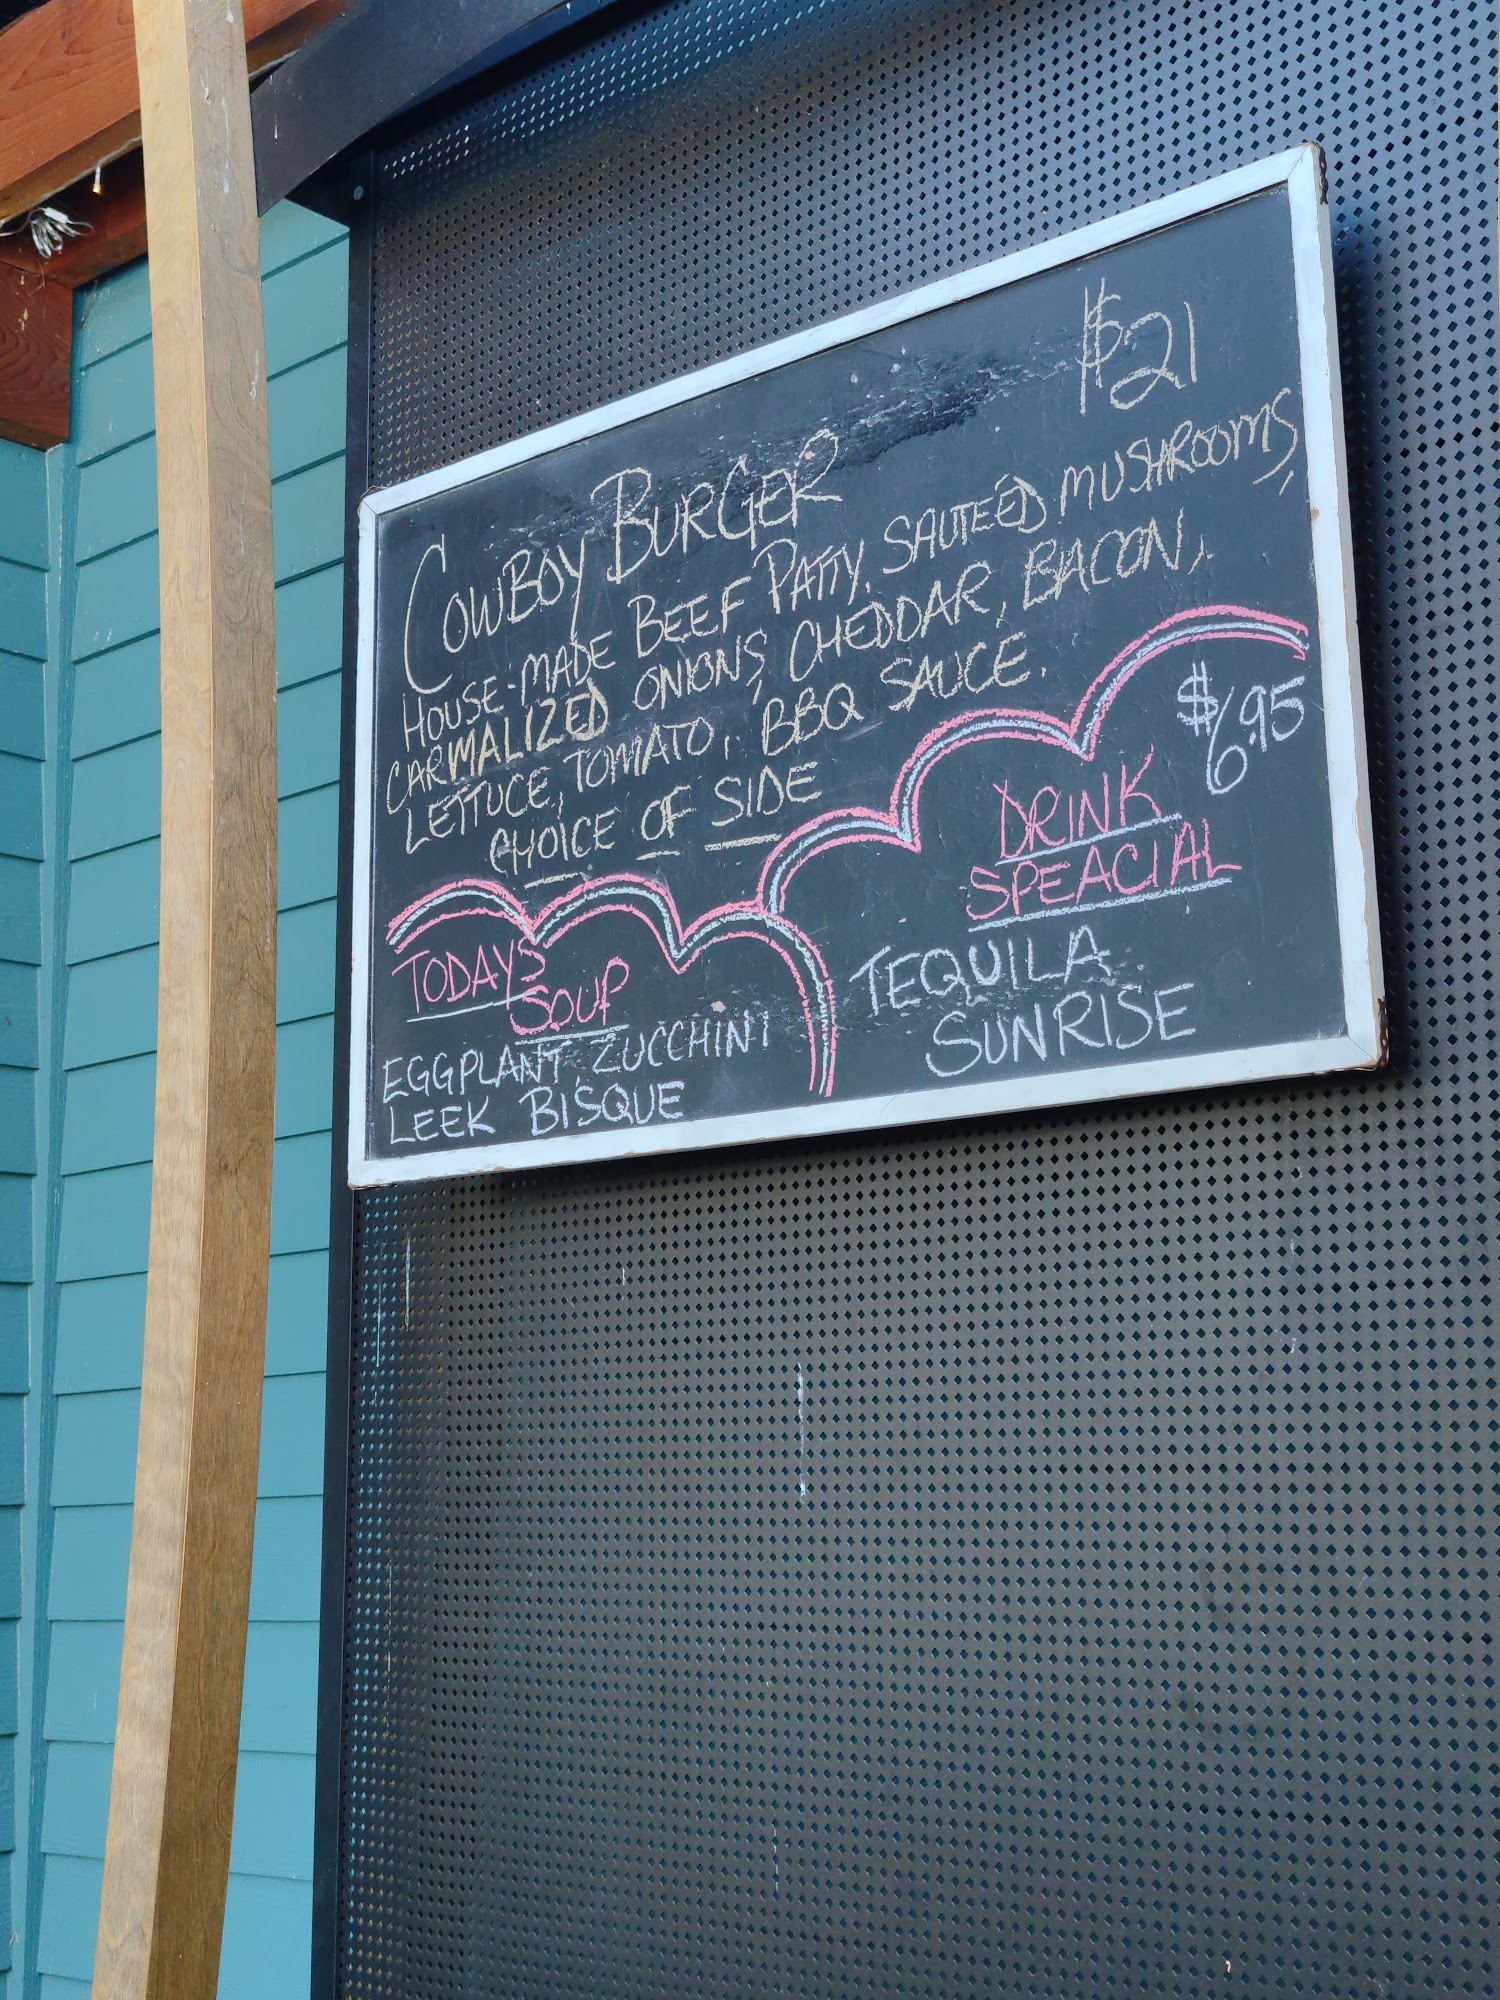 $21
COWBOY BURGER
HOUSE-MADE BEEF PATTY, SAUTEÉD MUSHROOMS,
CARMALIZED ONIONS, CHEDDAR, BACON,
LETTUCE, TOMATO, BBQ SAUCE.
CHOICE OF SIDE
TODAYS
SOUP
EGGPLANT, ZUCCHINI
LEEK BISQUE
$6.95
DRINK
SPEACIAL
TEQUILA
SUNRISE